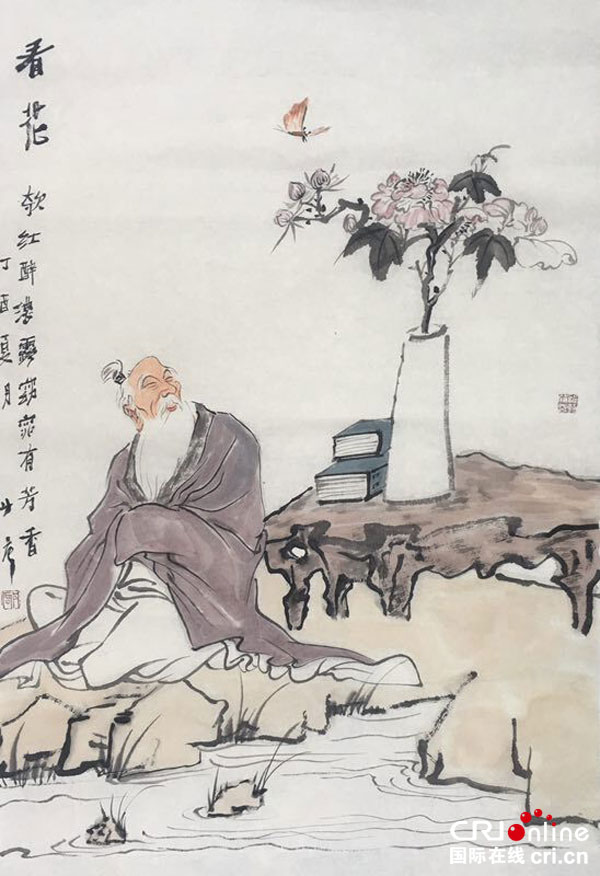 看花
欹红醉濃露窈窕有芳香
丁酉夏月
CRI online
国际在线 cri.cn